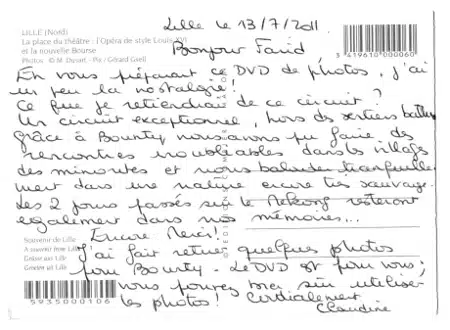 Lille le 13/7/2011.
LILLE (Nord)
La place du théâtre : l'Opéra de style Louis XVI
et la nouvelle Bourse
Photos © M. Duvart - Pix / Gérard Gsell
3 419610 000060
Bonjour Farid
En vous préparant ce DVD de photos, j'ai
un peu la nostalgie!
Ce que je retiendrai de ce circuit?
Un circuit exceptionnel, hors des sentiers battus
Grâce à Bounty nous avons pu faire des
rencontres inoubliables dans les villages
des minorités et nous balader tranquille
ment dans une nature encore très sauvage.
Les 2 jours passés sur le Mékong resteront
également dans nos mémoires...
Encore Merci!
Souvenir de Lille
A souvenir from Lille
J'ai fait retirer quelques photos
pour Bounty - Le DVD est pour vous;
vous pouvez bien sûr utiliser
les photos! Cordialement
Claudine
5935000106